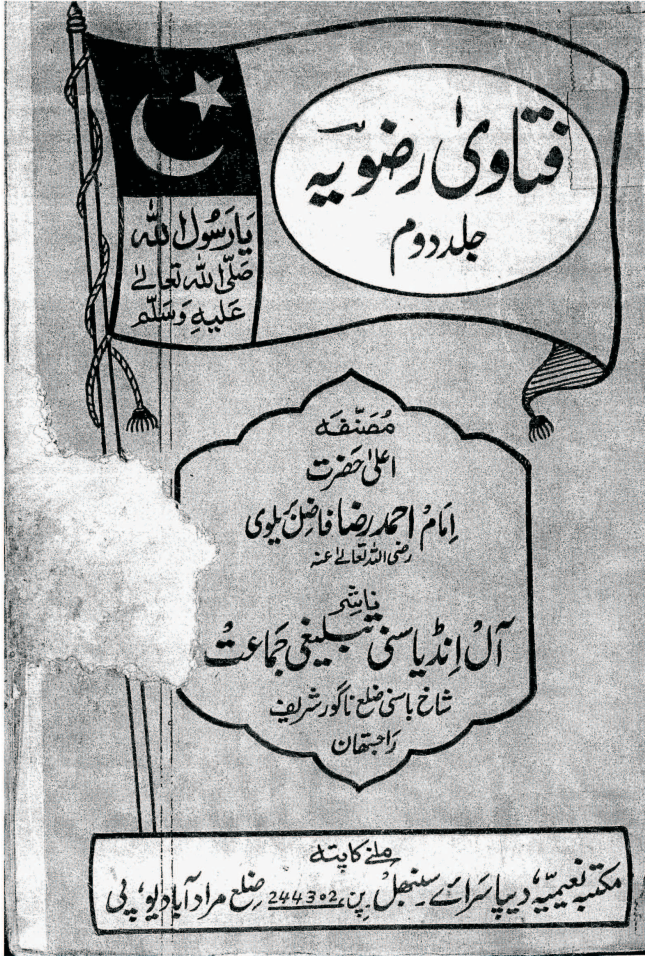 فتاویٰ رضویہ
جلد دوم
یَا رَسُولَ اللہ
صَلَّی اللہ تَعَالےٰ
عَلَیہِ وَسَلَّم
مُصَنِّفہ
اعلیٰ حَضرت
اِمَام احمد رضا فاضِل بریلوی
رضی اللہ تعالےٰ عنہ
ناشِر
آل اِنڈیا سنی تبلیغی جَمَاعت
شاخ باسنی ضلع ناگور شریف
رَاجستھان
ملنے کا پتہ
مکتبہ نعیمیہ، دیپا سَرائے سنبھل پن، 244302 ضِلع مراد آباد یو، پی